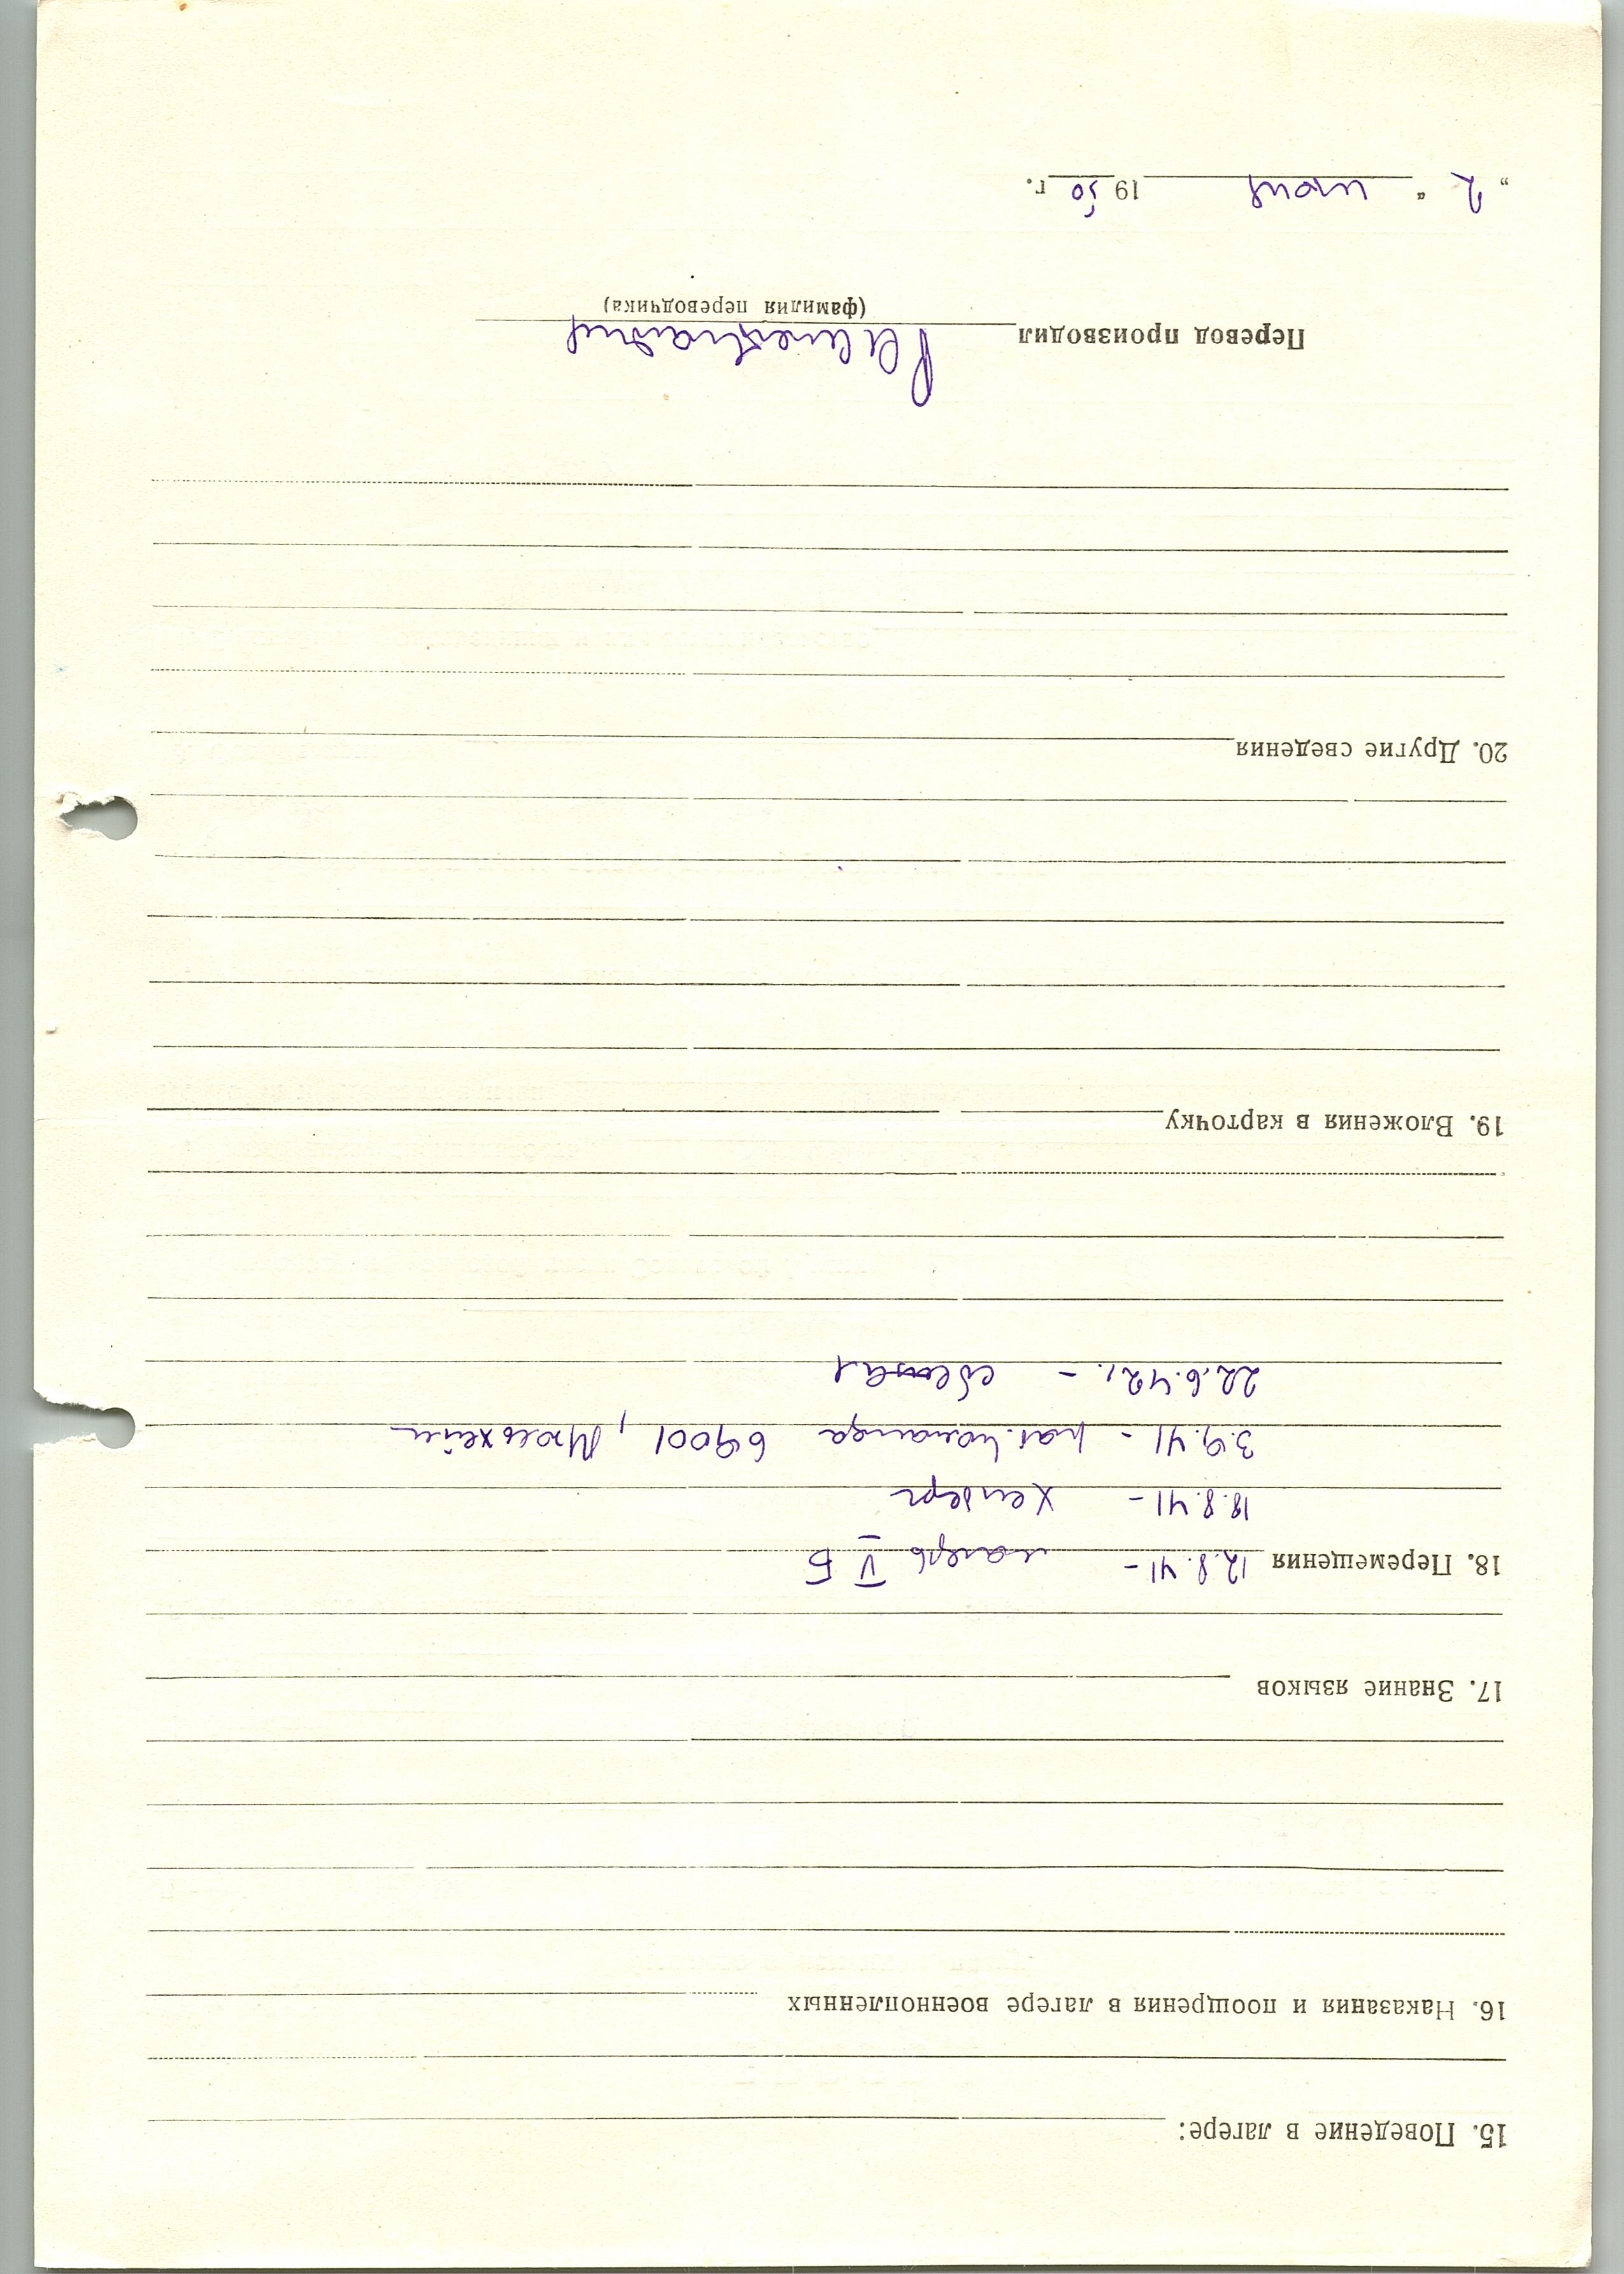 15. Поведение в лагере:
16. Наказания и поощрения в лагере военнопленных
17. Знание языков
18. Перемещения 12.8.41 – лагерь V Б
18.8.41 –
3.9.41 – раб. команда 69001, Мюльхейм
22.6.42. – сбежал
19. Вложения в карточку
20. Другие сведения
Перевод производил
(фамилия переводчика)
„ 2 “ июня 1950 г.